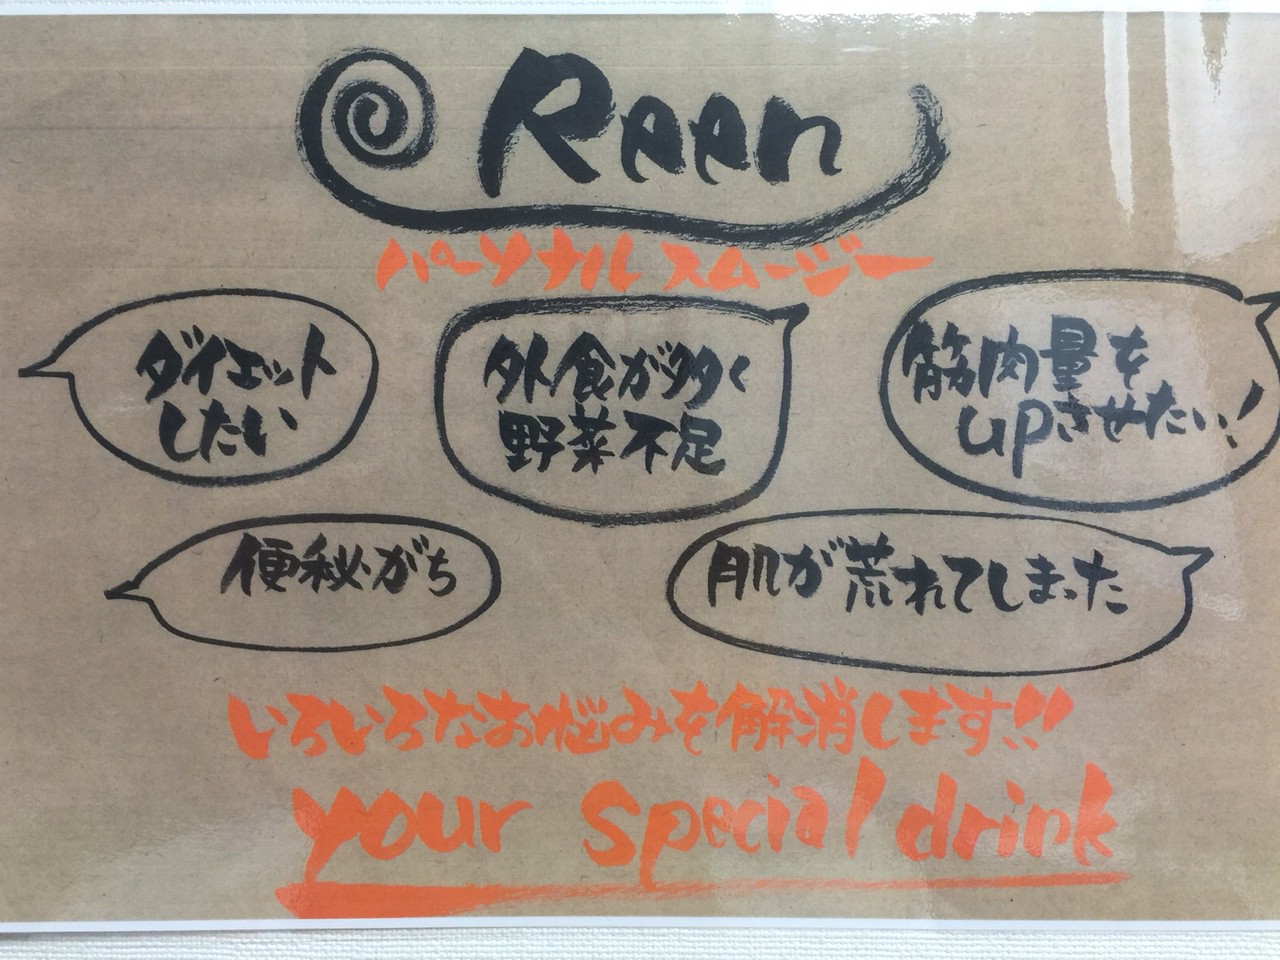 Reen
パーソナルスムージー
ダイエット
したい
外食が多く
野菜不足
筋肉量を
upさせたい!
便秘がち
肌が荒れてしまった
いろいろなお悩みを解消します!!
your special drink